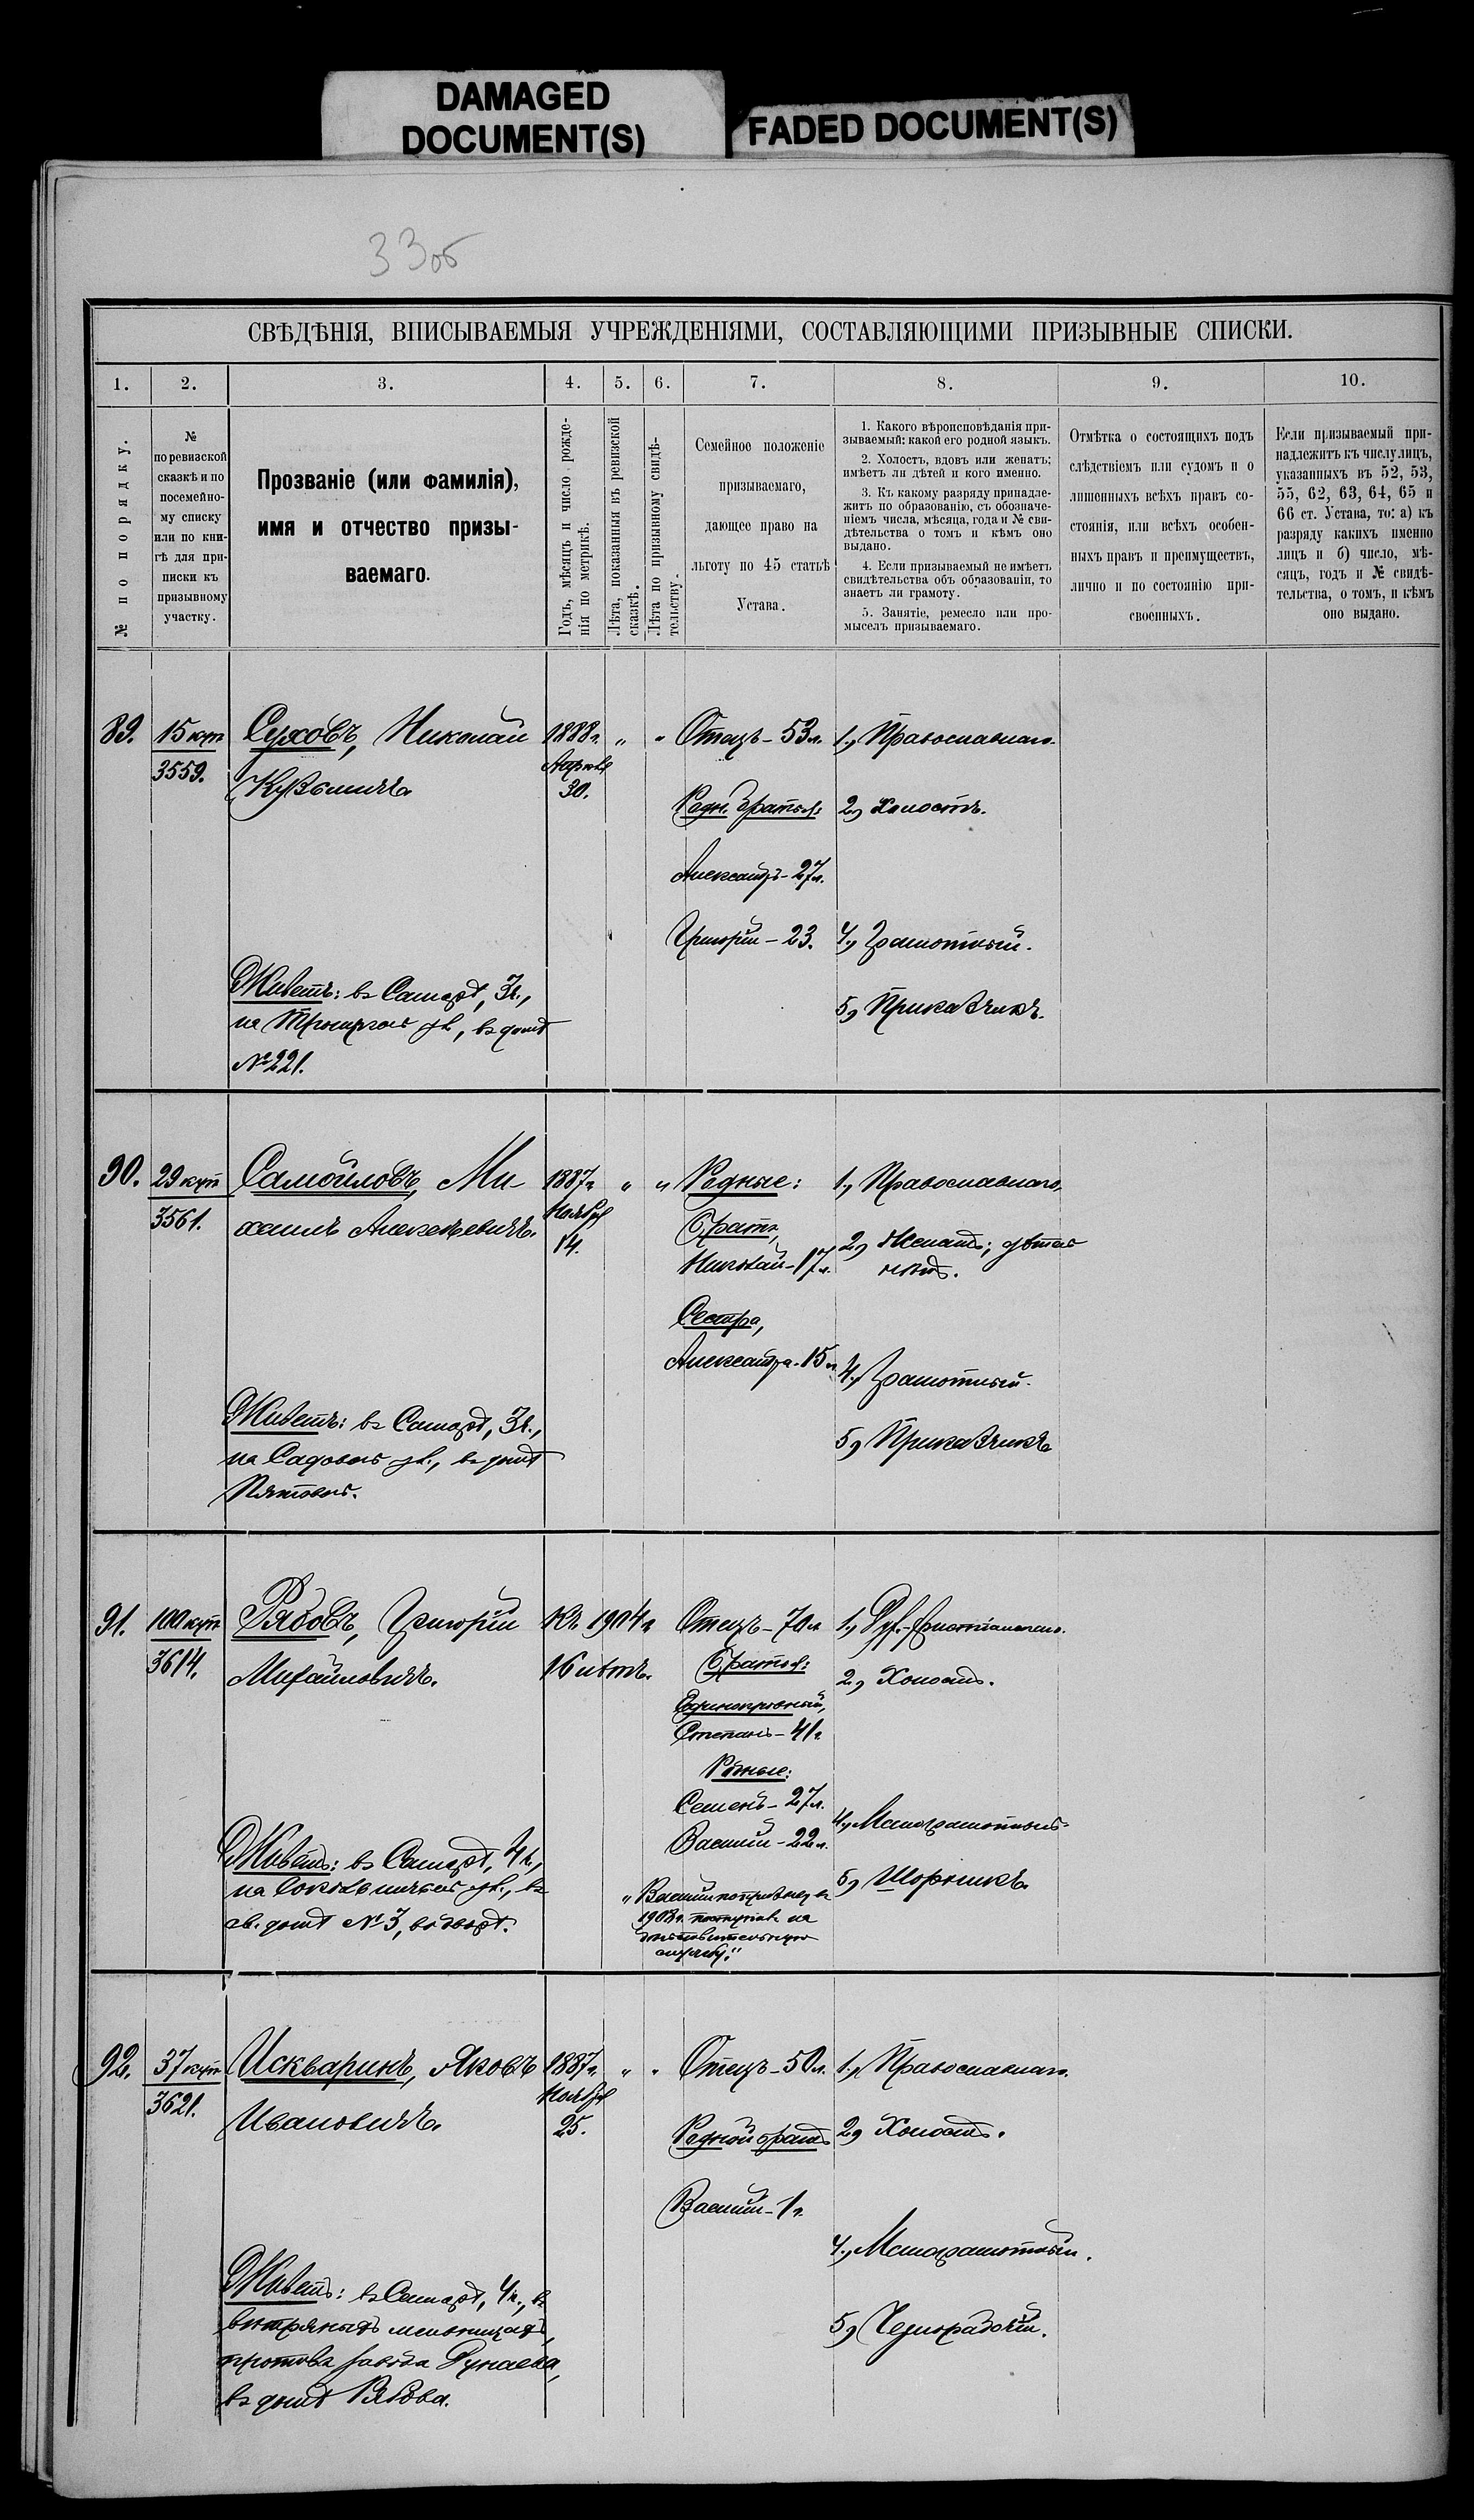 DAMAGED
DOCUMENT(S)
FADED DOCUMENT(S)
33об
СВѢДѢНІЯ, ВПИСЫВАЕМЫЯ УЧРЕЖДЕНІЯМИ, СОСТАВЛЯЮЩИМИ ПРИЗЫВНЫЕ СПИСКИ.
1. 2. 3. 4. 5. 6. 7. 8. 9. 10.
№ по порядку.
№
по ревизской
сказкѣ и по
посемейно-
му списку
или по кни-
гѣ для при-
писки къ
призывному
участку.
Прозваніе (или фамилія),
имя и отчество призы-
ваемаго.
Годъ, мѣсяцъ и число рожде-
нія по метрикѣ.
Лѣта, показанныя въ ревизской
сказкѣ.
Лѣта по призывному свидѣ-
тельству.
Семейное положеніе
призываемаго,
дающее право на
льготу по 45 статьѣ
Устава.
1. Какого вѣроисповѣданія при-
зываемый: какой его родной языкъ.
2. Холостъ, вдовъ или женатъ;
имѣетъ ли дѣтей и кого именно.
3. Къ какому разряду принадле-
житъ по образованію, съ обозначе-
ніемъ числа, мѣсяца, года и № сви-
дѣтельства о томъ и кѣмъ оно
выдано.
4. Если призываемый не имѣетъ
свидѣтельства объ образованіи, то
знаетъ ли грамоту.
5. Занятіе, ремесло или про-
мыселъ призываемаго.
Отмѣтка о состоящихъ подъ
слѣдствіемъ или судомъ и о
лишенныхъ всѣхъ правъ со-
стоянія, или всѣхъ особен-
ныхъ правъ и преимуществъ,
лично и по состоянію при-
своенныхъ.
Если призываемый при-
надлежитъ къ числу лицъ,
указанныхъ въ 52, 53,
55, 62, 63, 64, 65 и
66 ст. Устава, то: а) къ
разряду какихъ именно
лицъ и б) число, мѣ-
сяцъ, годъ и № свидѣ-
тельства, о томъ, и кѣмъ
оно выдано.
89.
15 куп
3559.
Суховъ, Николай
Кузьмичъ
Живетъ: въ Самарѣ, 3 ч.,
на Троицкой ул., въ домѣ
№ 221.
1888 г.
Апрѣля
30.
" "
Отецъ - 53 л.
Родн. братья:
Александръ - 27 л.
Григорій - 23.
1, Православнаго.
2, Холостъ.
4, Грамотный.
5, Приказчикъ.
90.
29 куп
3561.
Самойловъ, Ми-
хаилъ Алексѣевичъ.
Живетъ: въ Самарѣ, 3 ч.,
на Садовой ул., въ домѣ
Пятовой.
1887 г.
Ноября
14.
" "
Родные:
Братъ,
Николай - 17 л.
Сестра,
Александра - 15 л.
1, Православнаго,
2, Женатъ; дѣтей
нѣтъ.
4, Грамотный.
5, Приказчикъ
91.
100 куп
3614.
Рябовъ, Григорій
Михайловичъ.
Живетъ: въ Самарѣ, 4 ч.,
на ул., въ
соб. домѣ № 3, во дворѣ.
Къ 1904 г.
16 лѣтъ.
Отецъ - 70 л.
Братья:
Единокровный,
Степанъ - 41 г.
Родные:
Семенъ - 27 л.
Василій - 22 л.
"Василій
1908 г. поступилъ на
дѣйствительную
службу."
1, Дух.-христіанскаго.
2, Холостъ.
4, Малограмотный
5, Шорникъ.
92.
37 куп
3621.
Искваринъ, Яковъ
Ивановичъ.
Живетъ: въ Самарѣ, 4 ч., въ
вѣтряныхъ мельницахъ,
противъ завода Дунаева,
въ домѣ Рябова.
1887 г.
Ноября
25.
" "
Отецъ - 50 л.
Родной братъ
Василій - 1 г.
1, Православнаго.
2, Холостъ.
4, Малограмотный.
5, Чернорабочій.